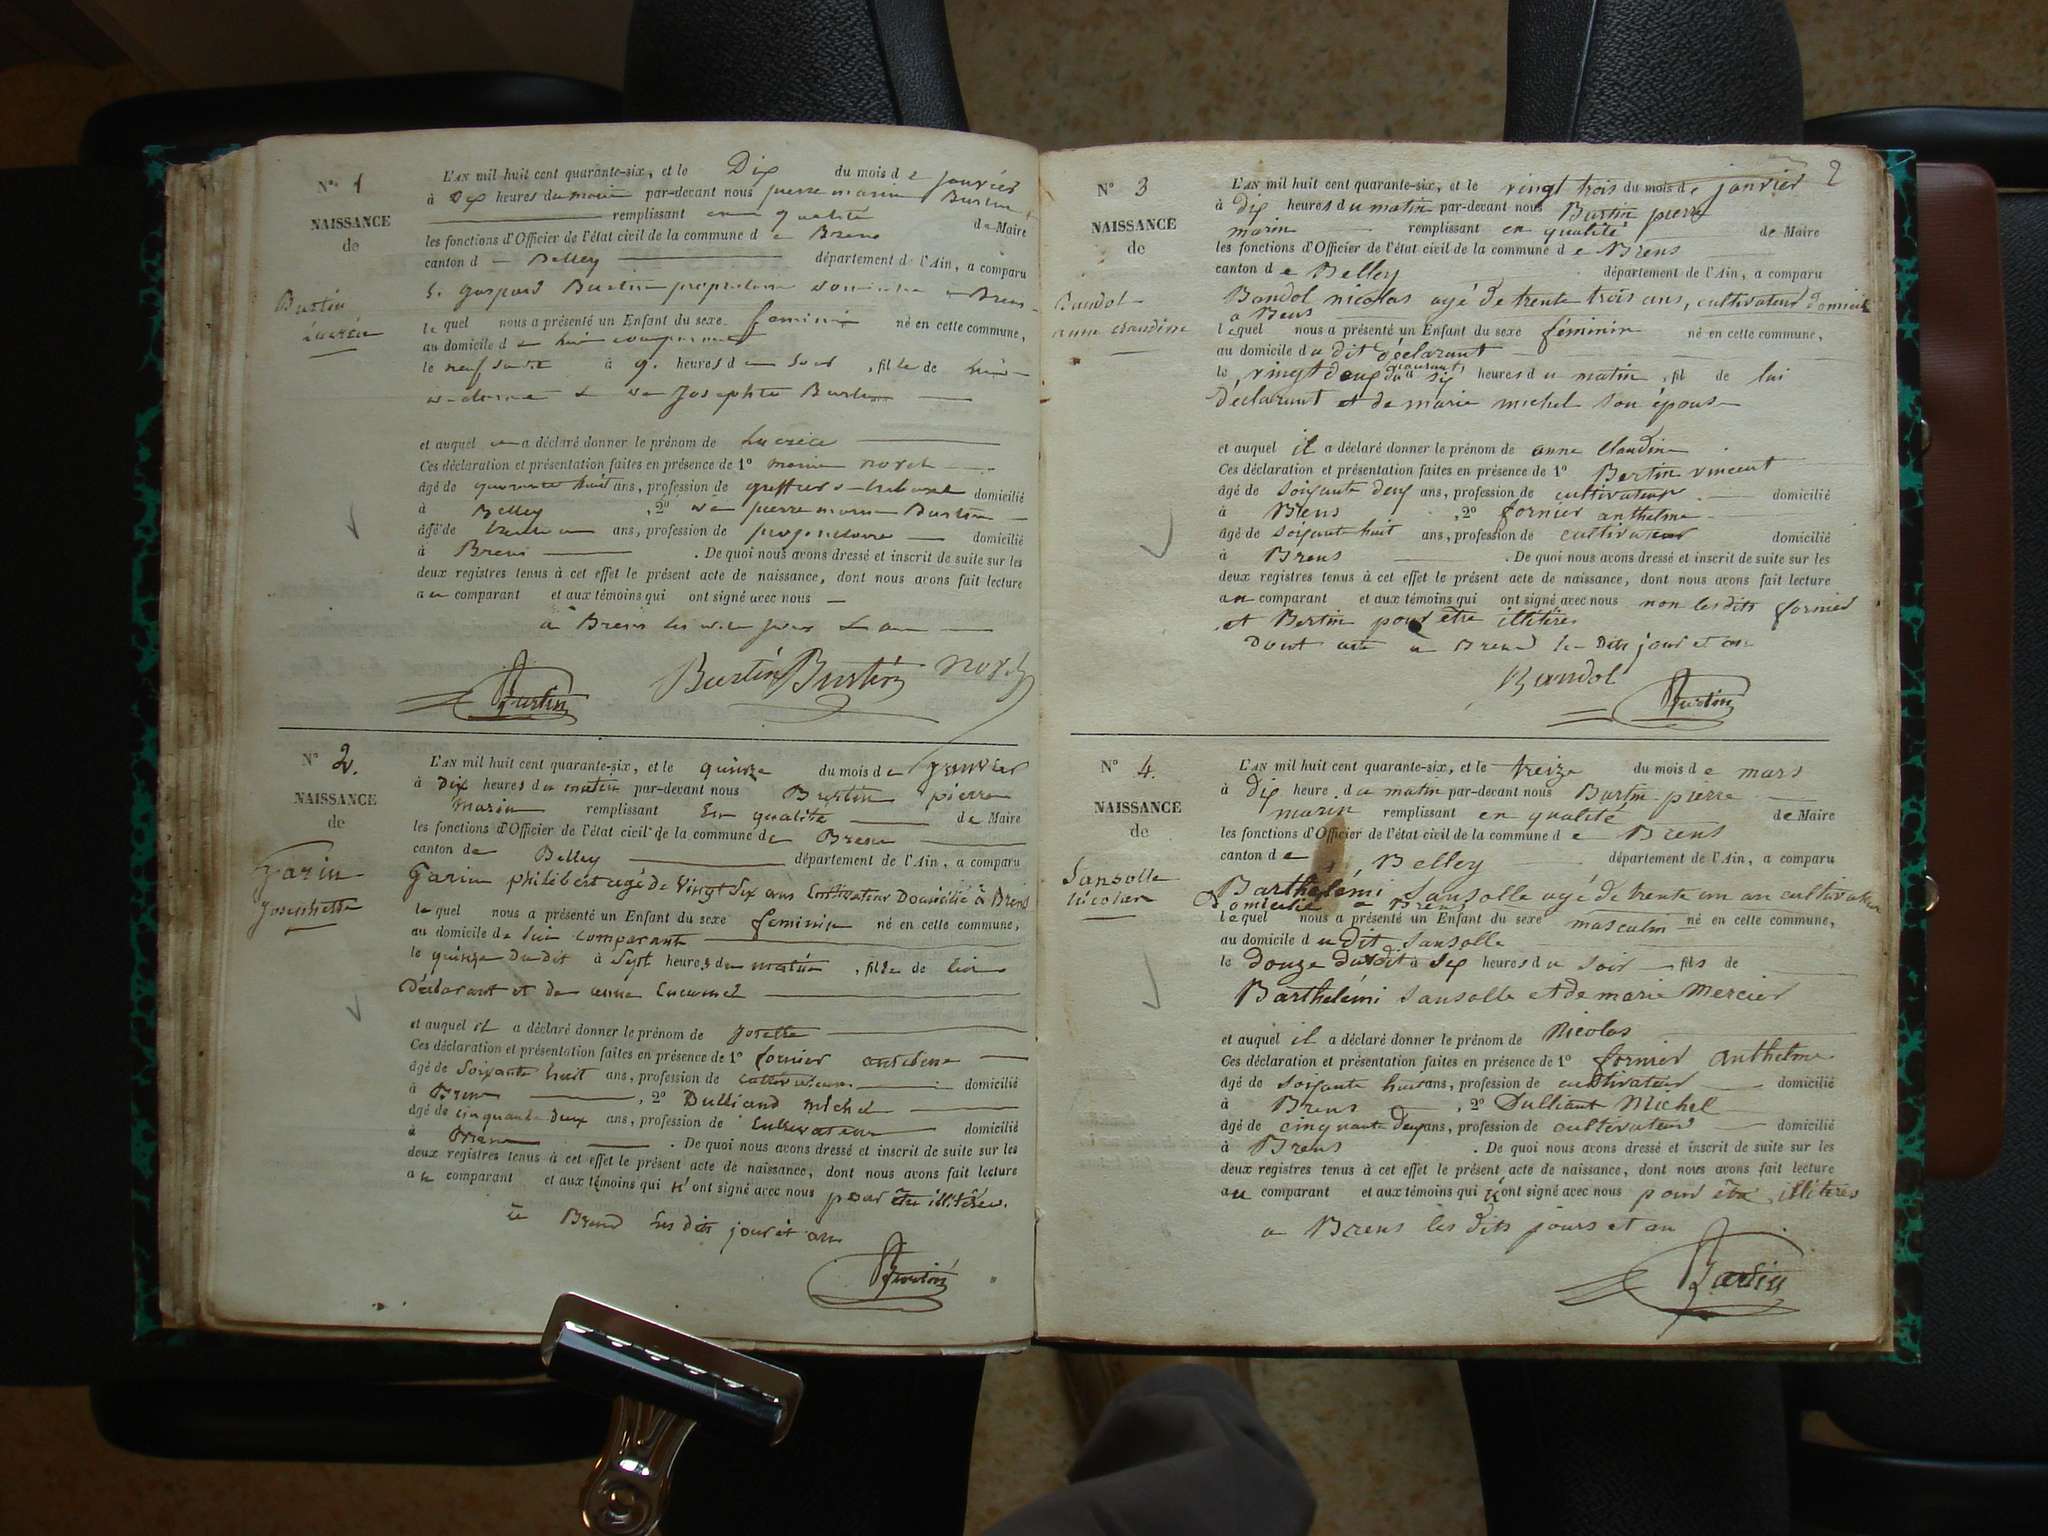 N° 1
NAISSANCE
de
Burtin
Lucrèce
L'AN mil huit cent quarante-six, et le Dix du mois de janvier
à dix heures du matin par-devant nous pierre marin Burtin
remplissant en qualité de Maire
les fonctions d'Officier de l'état civil de la commune de Brens
canton de Belley département de l'Ain, a comparu
S. gaspard Burtin propriétaire domicilié à Brens
lequel nous a présenté un Enfant du sexe feminin né en cette commune,
au domicile de lui comparant
le neuf à 9 heures du soir, fille de lui
et de Josephte Burtin
et auquel a déclaré donner le prénom de Lucrèce
Ces déclaration et présentation faites en présence de 1° norch
âgé de quarante huit ans, profession de greffier domicilié
à Belley, 2° pierre marin Burtin
âgé de ans, profession de propriétaire domicilié
à Brens. De quoi nous avons dressé et inscrit de suite sur les
deux registres tenus à cet effet le présent acte de naissance, dont nous avons fait lecture
au comparant et aux témoins qui ont signé avec nous
à Brens les dits jour & an
Burtin Burtin Burtin
N° 2.
NAISSANCE
de
Garin
Josephette
L'AN mil huit cent quarante-six, et le quinze du mois de janvier
à dix heures du matin par-devant nous Burtin pierre
marin remplissant en qualité de Maire
les fonctions d'Officier de l'état civil de la commune de Brens
canton de Belley département de l'Ain, a comparu
Garin philibert agé de vingt six ans Cultivateur Domicilié à Brens
lequel nous a présenté un Enfant du sexe feminin né en cette commune,
au domicile de lui comparant
le quinze du dit à sept heures du matin, fille de lui
déclarant et de anne
et auquel il a déclaré donner le prénom de
Ces déclaration et présentation faites en présence de 1° fornier anthelme
âgé de soixante huit ans, profession de cultivateur domicilié
à Brens, 2° Dulliand michel
âgé de cinquante deux ans, profession de Cultivateur domicilié
à Brens. De quoi nous avons dressé et inscrit de suite sur les
deux registres tenus à cet effet le présent acte de naissance, dont nous avons fait lecture
au comparant et aux témoins qui n'ont signé avec nous pour être illitérés.
à Brens les dits jour et an
Burtin
2
N° 3
NAISSANCE
de
Bandol
anne claudine
L'AN mil huit cent quarante-six, et le vingt trois du mois de janvier
à dix heures du matin par-devant nous Burtin pierre
marin remplissant en qualité de Maire
les fonctions d'Officier de l'état civil de la commune de Brens
canton de Belley département de l'Ain, a comparu
Bandol nicolas agé de trente trois ans, cultivateur domicilié
a Brens
lequel nous a présenté un Enfant du sexe féminin né en cette commune,
au domicile du dit déclarant
le vingt deux du courant à six heures du matin, fil de lui
déclarant et de marie michel son épouse
et auquel il a déclaré donner le prénom de anne claudine
Ces déclaration et présentation faites en présence de 1° Bertin vincent
âgé de soixante deux ans, profession de cultivateur domicilié
à Brens, 2° fornier anthelme
âgé de soixante huit ans, profession de cultivateur domicilié
à Brens. De quoi nous avons dressé et inscrit de suite sur les
deux registres tenus à cet effet le présent acte de naissance, dont nous avons fait lecture
au comparant et aux témoins qui ont signé avec nous non les dits fornier
et Bertin pour être illitérés
dont acte à Brens les dits jour et an
Bandol Burtin
N° 4.
NAISSANCE
de
Sansolle
Nicolas
L'AN mil huit cent quarante-six, et le treize du mois de mars
à dix heure du matin par-devant nous Burtin pierre
marin remplissant en qualité de Maire
les fonctions d'Officier de l'état civil de la commune de Brens
canton de Belley département de l'Ain, a comparu
Barthelémi Sansolle agé de trente un an cultivateur
domicilié a Brens
lequel nous a présenté un Enfant du sexe masculin né en cette commune,
au domicile du dit Sansolle
le douze du dit à six heures du soir fils de
Barthelémi Sansolle et de marie Mercier
et auquel il a déclaré donner le prénom de Nicolas
Ces déclaration et présentation faites en présence de 1° fornier anthelme
âgé de soixante huit ans, profession de cultivateur domicilié
à Brens, 2° Dulliant Michel
âgé de cinquante deux ans, profession de cultivateur domicilié
à Brens. De quoi nous avons dressé et inscrit de suite sur les
deux registres tenus à cet effet le présent acte de naissance, dont nous avons fait lecture
au comparant et aux témoins qui n'ont signé avec nous pour être illitérés
a Brens les dits jours et an
Burtin